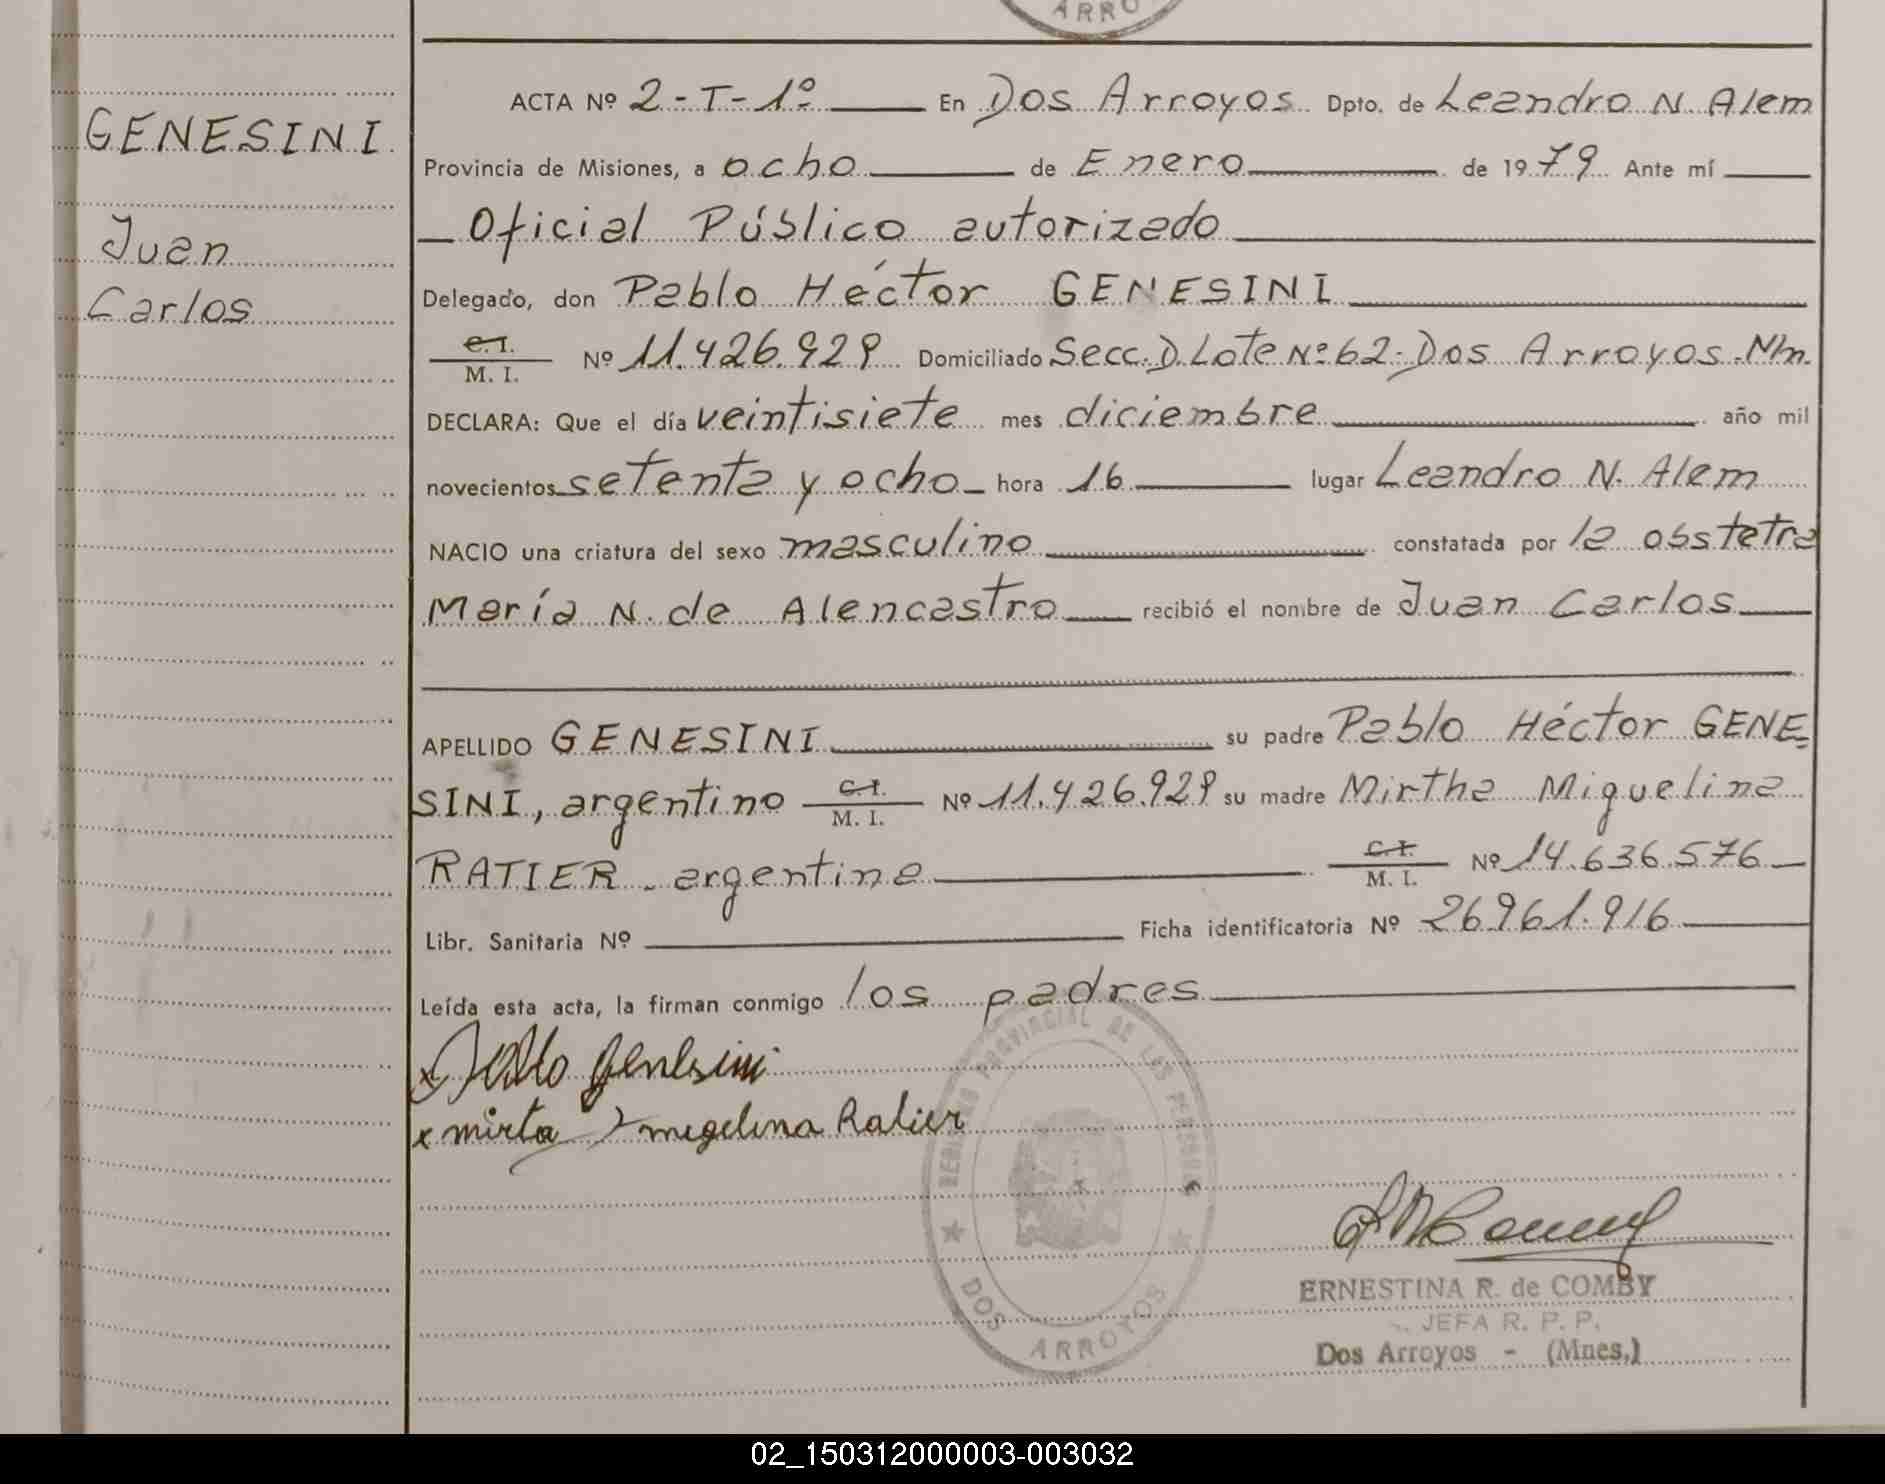 ARRO
ACTA Nº 2-T-1º En Dos Arroyos Dpto. de Leandro N. Alem
GENESINI
Provincia de Misiones, a ocho de Enero de 1979 Ante mí
Juan
Oficial Público autorizado
Carlos
Delegado, don Pablo Héctor GENESINI
C.I.
M. I. Nº 11.426.929 Domiciliado Secc. D. Lote Nº 62-Dos Arroyos-Mn.
DECLARA: Que el día veintisiete mes diciembre año mil
novecientos setenta y ocho hora 16 lugar Leandro N. Alem
NACIO una criatura del sexo masculino constatada por la obstetra
María N. de Alencastro recibió el nombre de Juan Carlos
APELLIDO GENESINI su padre Pablo Héctor GENE-
SINI, argentino C.I. M. I. Nº 11.426.929 su madre Mirtha Miguelina
RATIER - argentina C.I. M. I. Nº 14.636.576
Libr. Sanitaria Nº Ficha identificatoria Nº 26.961.916
Leída esta acta, la firman conmigo los padres
x Pablo Genesini
x mirta megelina Ratier
REGISTRO PROVINCIAL DE LAS PERSONAS
DOS ARROYOS
ERNESTINA R. de COMBY
JEFA R. P. P.
Dos Arroyos - (Mnes.)
02_150312000003-003032